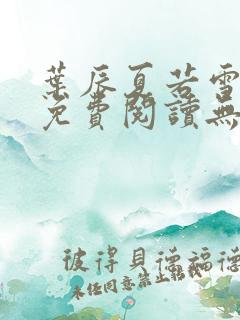 葉辰夏若雪
免費閱讀無
彼得貝德福德
未經同意禁止轉載